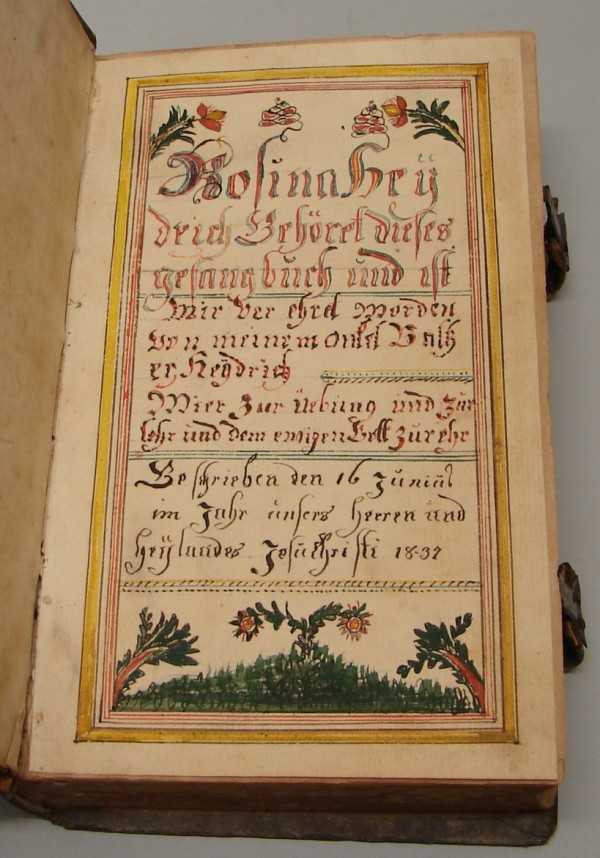 Rosina Heÿ
drich Gehöret dieses
gesang buch und ist
Mir ver ehret Worden
von meinem onkel Baltz
er Heÿdrich
Mier Zur Uebung und Zur
lehr und dem ewigen Gott Zur ehr
Beschrieben den 16 Junius
im Jahr unsers herren und
heÿlandes Jesu Christi 1837